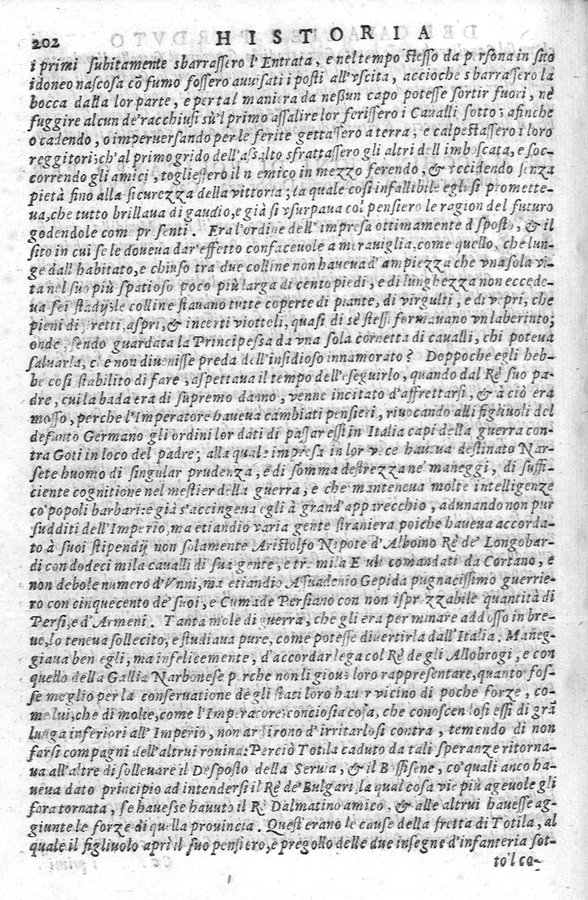 202 HISTORIA
i primi subitamente sbarrassero l'Entrata, e nel tempo stesso da persona in suo
idoneo nascosa cõ fumo fossero auuisati i posti all'vscita, accioche sbarrassero la
bocca dalla lor parte, e per tal maniera da neßun capo potesse sortir fuori, ne
fuggire alcun de'racchiusi sù'l primo assalire lor ferissero i Caualli sotto; afinche
o cadendo, o imperuersando per le ferite gettassero a terra, e calpestassero i loro
reggitori; ch'al primo grido dell'assalto sfrattassero gli altri dell'imboscata, e soc-
correndo gli amici, togliessero il nemico in mezzo ferendo, & vccidendo senza
pietà fino alla sicurezza della vittoria; la quale così infallibile egli si promette-
ua, che tutto brillaua di gaudio, e già si vsurpaua col pensiero le ragion del futuro
godendole com presenti. Era l'ordine dell'impresa ottimamente disposto, & il
sito in cui se le doueua dar'effetto confaceuole a merauiglia, come quello, che lun-
ge dall'habitato, e chiuso tra due colline non haueua d'ampiezza che vna sola vi-
ta nel suo più spatioso poco più larga di cento piedi, e di lunghezza non eccede-
ua sei stadij: le colline stauano tutte coperte di piante, di virgulti, e di vepri, che
pieni di stretti, aspri, & incerti viottoli, quasi di sè stessi formauano vn laberinto;
onde essendo guardata la Principessa da vna sola cornetta di caualli, chi poteua
saluarla, che non diuenisse preda dell'insidioso innamorato? Doppoche egli heb-
be così stabilito di fare, aspettaua il tempo dell'eseguirlo, quando dal Rè suo pa-
dre, cui la bada era di supremo danno, venne incitato d'affrettarsi, & a ciò era
mosso, perche l'Imperatore haueua cambiati pensieri, riuocando alli figliuoli del
defunto Germano gli ordini lor dati di passar essi in Italia capi della guerra con-
tra Goti in loco del padre; alla quale impresa in lor vece haueua destinato Nar-
sete huomo di singular prudenza, e di somma destrezza ne' maneggi, di suffi-
ciente cognitione nel mestier della guerra, e che manteneua molte intelligenze
co' popoli barbari: e già s'accingeua egli à grand'apparecchio, adunando non pur
sudditi dell'Imperio, ma etiandio varia gente straniera poiche haueua accorda-
to à suoi stipendij non solamente Aristolfo Nipote d'Alboino Rè de' Longobar-
di con dodeci mila caualli di sua gente, e tre mila Eruli comandati da Cortano, e
non debole numero d'Vnni, ma etiandio Assuadenio Gepida pugnacissimo guerrie-
ro con cinquecento de' suoi, e Cumade Persiano con non isprezzabile quantità di
Persi, e d'Armeni. Tanta mole di guerra, che gli era per minare addosso in bre-
ue, lo teneua sollecito, e studiaua pure, come potesse diuertirla dall'Italia. Maneg-
giaua ben egli, ma infelicemente, d'accordar lega col Rè de gli Allobrogi, e con
quello della Gallia Narbonese perche non li gioua loro rappresentare, quanto fos-
se meglio per la conseruatione degli stati loro hauer vicino di poche forze, co-
me lui, che di molte, come l'Imperatore: conciosia cosa, che conoscendosi essi di grã
lunga inferiori all'Imperio, non ardirono d'irritarlosi contra, temendo di non
farsi compagni dell'altrui rouina: Perciò Totila caduto da tali speranze ritorna-
ua all'altre di solleuare il Desposto della Seruia, & il Bossisene, co' quali anco ha-
ueua dato principio ad intendersi il Rè de' Bulgari, la qual cosa vie più ageuole gli
fora tornata, se hauesse hauuto il Rè Dalmatino amico, & alle altrui hauesse ag-
giunte le forze di quella prouincia. Quest'erano le cause della fretta di Totila, al
quale il figliuolo aprì il suo pensiero, e pregollo delle due insegne d'infanteria sot-
to'l co-